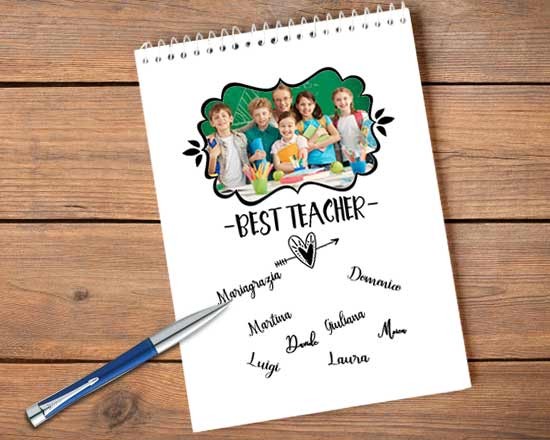 -BEST TEACHER-
Mariagrazia
Domenico
Martina
Giuliana
Davide
Luigi
Laura